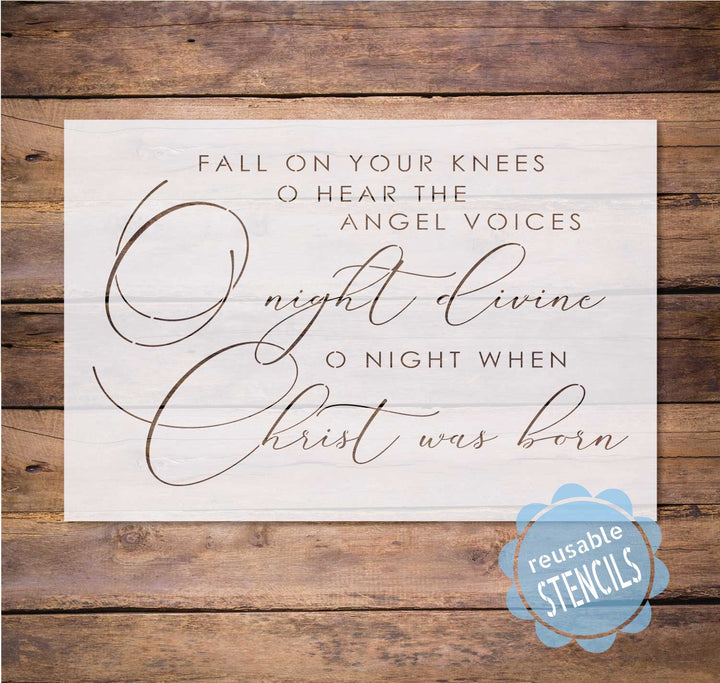 FALL ON YOUR KNEES
O HEAR THE
ANGEL VOICES
O night divine
O NIGHT WHEN
Christ was born
reusable
STENCILS